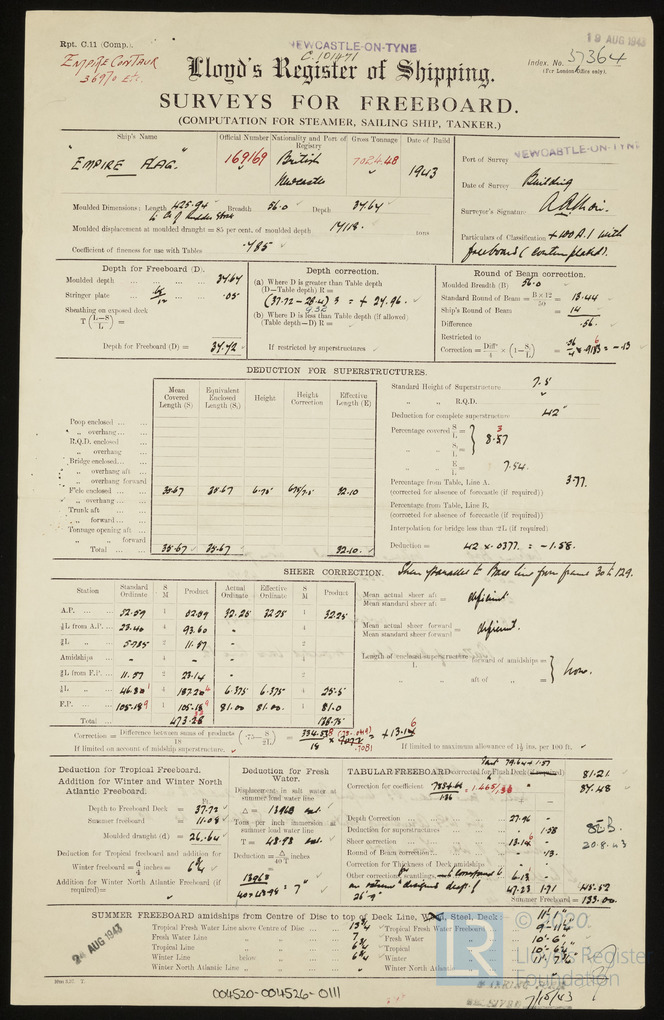 Rpt. C.11 (Comp.).
NEWCASTLE-ON-TYNE
19 AUG 1943
EMPIRE CONTAUR
36970 Etc.
C.101471
Index. No. 37364
(For London Office only).
Lloyd's Register of Shipping.
SURVEYS FOR FREEBOARD.
(COMPUTATION FOR STEAMER, SAILING SHIP, TANKER.)
Ship's Name
Official Number
Nationality and Port of Registry
Gross Tonnage
Date of Build
"EMPIRE FLAG."
169169
British
Newcastle
7024.48
1943
Port of Survey NEWCASTLE-ON-TYNE
Date of Survey Building
Surveyor's Signature
Particulars of Classification +100A.1 with
freeboard (contemplated).
Moulded Dimensions: Length 425.94 Breadth 56.0 Depth 37.67
to C of Rudder Stock
Moulded displacement at moulded draught = 85 per cent. of moulded depth 17118. tons
Coefficient of fineness for use with Tables .785
Depth for Freeboard (D).
Moulded depth ... ... 37.67
Stringer plate ... .05
Sheathing on exposed deck
T (L-S/L) =
Depth for Freeboard (D) = 37.72
Depth correction.
(a) Where D is greater than Table depth
(D—Table depth) R =
(37.72 - 28.4) 3 = + 27.96.
9.32
(b) Where D is less than Table depth (if allowed)
(Table depth—D) R =
If restricted by superstructures
Round of Beam correction.
Moulded Breadth (B) 56.0
Standard Round of Beam = B×12/50 = 13.44
Ship's Round of Beam = 14
Difference .56.
Restricted to
Correction = Diffce/4 × (1-S₁/L) = .56/4 × .9163 = -.13
DEDUCTION FOR SUPERSTRUCTURES.
Mean Covered Length (S)
Equivalent Enclosed Length (S₁)
Height
Height Correction
Effective Length (E)
Poop enclosed ... ...
„ overhang ... ...
R.Q.D. enclosed
„ overhang
Bridge enclosed... ...
„ overhang aft
„ overhang forward
F'cle enclosed ... 35.67 35.67 6.75 6.75/7.5 32.10
„ overhang ...
Trunk aft
„ forward ...
Tonnage opening aft ...
„ „ forward
Total ... ... 35.67 35.67 32.10
Standard Height of Superstructure 7.5
„ „ R.Q.D.
Deduction for complete superstructure 42"
Percentage covered S/L =
„ „ S₁/L = 8.37
„ „ E/L = 7.54.
Percentage from Table, Line A. 3.77.
(corrected for absence of forecastle (if required))
Percentage from Table, Line B.
(corrected for absence of forecastle (if required))
Interpolation for bridge less than ·2L (if required)
Deduction = 42 × .0377. = -1.58.
SHEER CORRECTION. Sheer parallel to Base line from frame 30 to 129.
Station
Standard Ordinate
S M
Product
Actual Ordinate
Effective Ordinate
S M
Product
A.P. ... ... 52.59 1 52.59 32.25 32.25 1 32.25
⅙L from A.P. ... 23.40 4 93.60 - 4
⅓L „ 5.785 2 11.57 - 2
Amidships ... - 4 - - 4
⅓L from F.P. ... 11.57 2 23.14 - 2
⅙L „ 46.80 4 187.20 6.375 6.375 4 25.5
F.P. ... ... 105.18 1 105.18 81.00 81.00. 1 81.0
Total ... 473.28 138.75
Mean actual sheer aft
Mean standard sheer aft = deficient
Mean actual sheer forward
Mean standard sheer forward = deficient.
Length of enclosed superstructure forward of amidships =
L
„ aft of „ =
None.
Correction = Difference between sums of products/18 (·75-S/2L) = 334.53/18 × .7081 = +13.16
If limited on account of midship superstructure.
If limited to maximum allowance of 1½ ins. per 100 ft.
Deduction for Tropical Freeboard.
Addition for Winter and Winter North Atlantic Freeboard.
Ft.
Depth to Freeboard Deck = 37.72
Summer freeboard = 11.08
Moulded draught (d) = 26.64
Deduction for Tropical freeboard and addition for Winter freeboard = d/4 inches = 6¾
Addition for Winter North Atlantic Freeboard (if required) =
Deduction for Fresh Water.
Displacement in salt water at summer load water line
Δ =
Tons per inch immersion at summer load water line
T =
Deduction = Δ/40T inches
= 7"
TABULAR FREEBOARD corrected for Flush Deck (if required) 81.21
Correction for coefficient 87.48
1.36
Depth Correction ... 27.96
Deduction for superstructures 1.58
Sheer correction 13.16
Round of Beam correction .13.
Correction for Thickness of Deck amidships
Other corrections, scantlings, 6.13
47.23 1.71 45.52
Summer Freeboard = 133.00
20.8.43
SUMMER FREEBOARD amidships from Centre of Disc to top of Deck Line, Wood, Steel, Deck 11'-1"
Tropical Fresh Water Line above Centre of Disc ... 13¾ „ Tropical Fresh Water Freeboard 9-11¼"
Fresh Water Line „ „ 7 „ Fresh Water „ 10'-6"
Tropical Line „ „ 6¾ „ Tropical „ 10'-6¼"
Winter Line below „ 6¾ „ Winter „ 11'-7¾"
Winter North Atlantic Line „ „ „ Winter North Atlantic „
24 AUG 1943
004520-004526-0111
7/15/43
LR
© 2020.
Lloyd's Register
Foundation